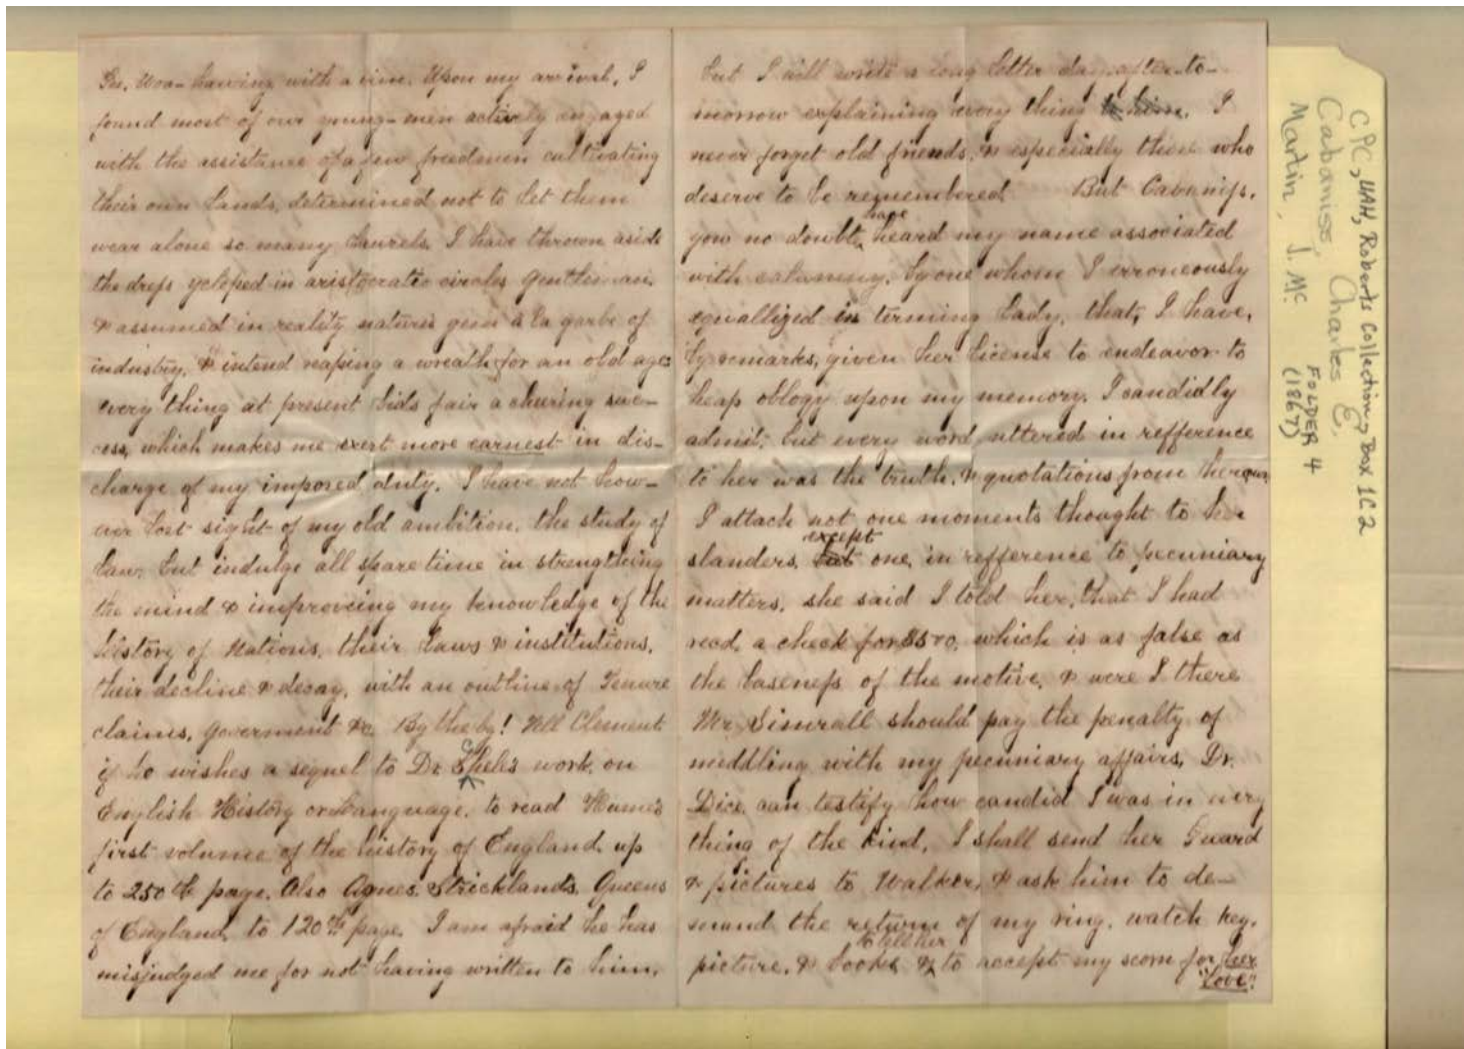 Gee, Woa-hawing with a vim. Upon my arrival, I
found most of our young-men actively engaged
with the assistance of a few freedmen cultivating
their own lands, determined not to let them
wear alone so many laurels. I have thrown aside
the dress ycleped in aristocratic circles gentleman,
& assumed in reality nature's a la garbe of
industry, & intend reaping a wreath for an old age
every thing at present bids fair a cheering suc-
cess, which makes me exert more earnest in dis-
charge of my imposed duty. I have not how-
ever lost sight of my old ambition, the study of
law, but indulge all spare time in strengthing
the mind & improveing my knowledge of the
history of Nations, their laws & institutions,
their decline & decay, with an outline of Tenure
claims, government &c. By the by! tell Clement
if he wishes a sequel to Dr. work, on
English History or Language, to read Hume's
first volume of the history of England, up
to 250th page. Also Agnes Stricklands, Queens
of England, to 120th page. I am afraid he has
misjudged me for not having written to him,
but I will write a long letter day after-to-
morrow explaining every thing to him. I
never forget old friends, & especially those who
deserve to be remembered. But Cavaniss,
you no doubt, have heard my name associated
with calumny, by one whom I erroneously
equallized in terming Lady, that, I have,
by remarks, given her license to endeavor to
heap oblogy upon my memory. I candidly
admit, but every word uttered in refference
to her was the truth, & quotations from her own
I attach not one moments thought to her
slanders, but except one, in refference to pecuniary
matters, she said I told her, that I had
recd, a check for which is as false as
the baseness of the motive, & were I there
Mr. Simrall should pay the penalty of
meddling with my pecuniary affairs, Dr.
Dice, can testify how candid I was in every
thing of the kind, I shall send her Guard
& pictures to Walker, & ask him to de-
mand the return of my ring, watch key,
picture, & books, & tell her to accept my scorn for her
"love".
CPC, UAH, Roberts Collection, Box 1C2
Cabaniss, Charles E.
Martin, J. Mc
FOLDER 4
(1867)